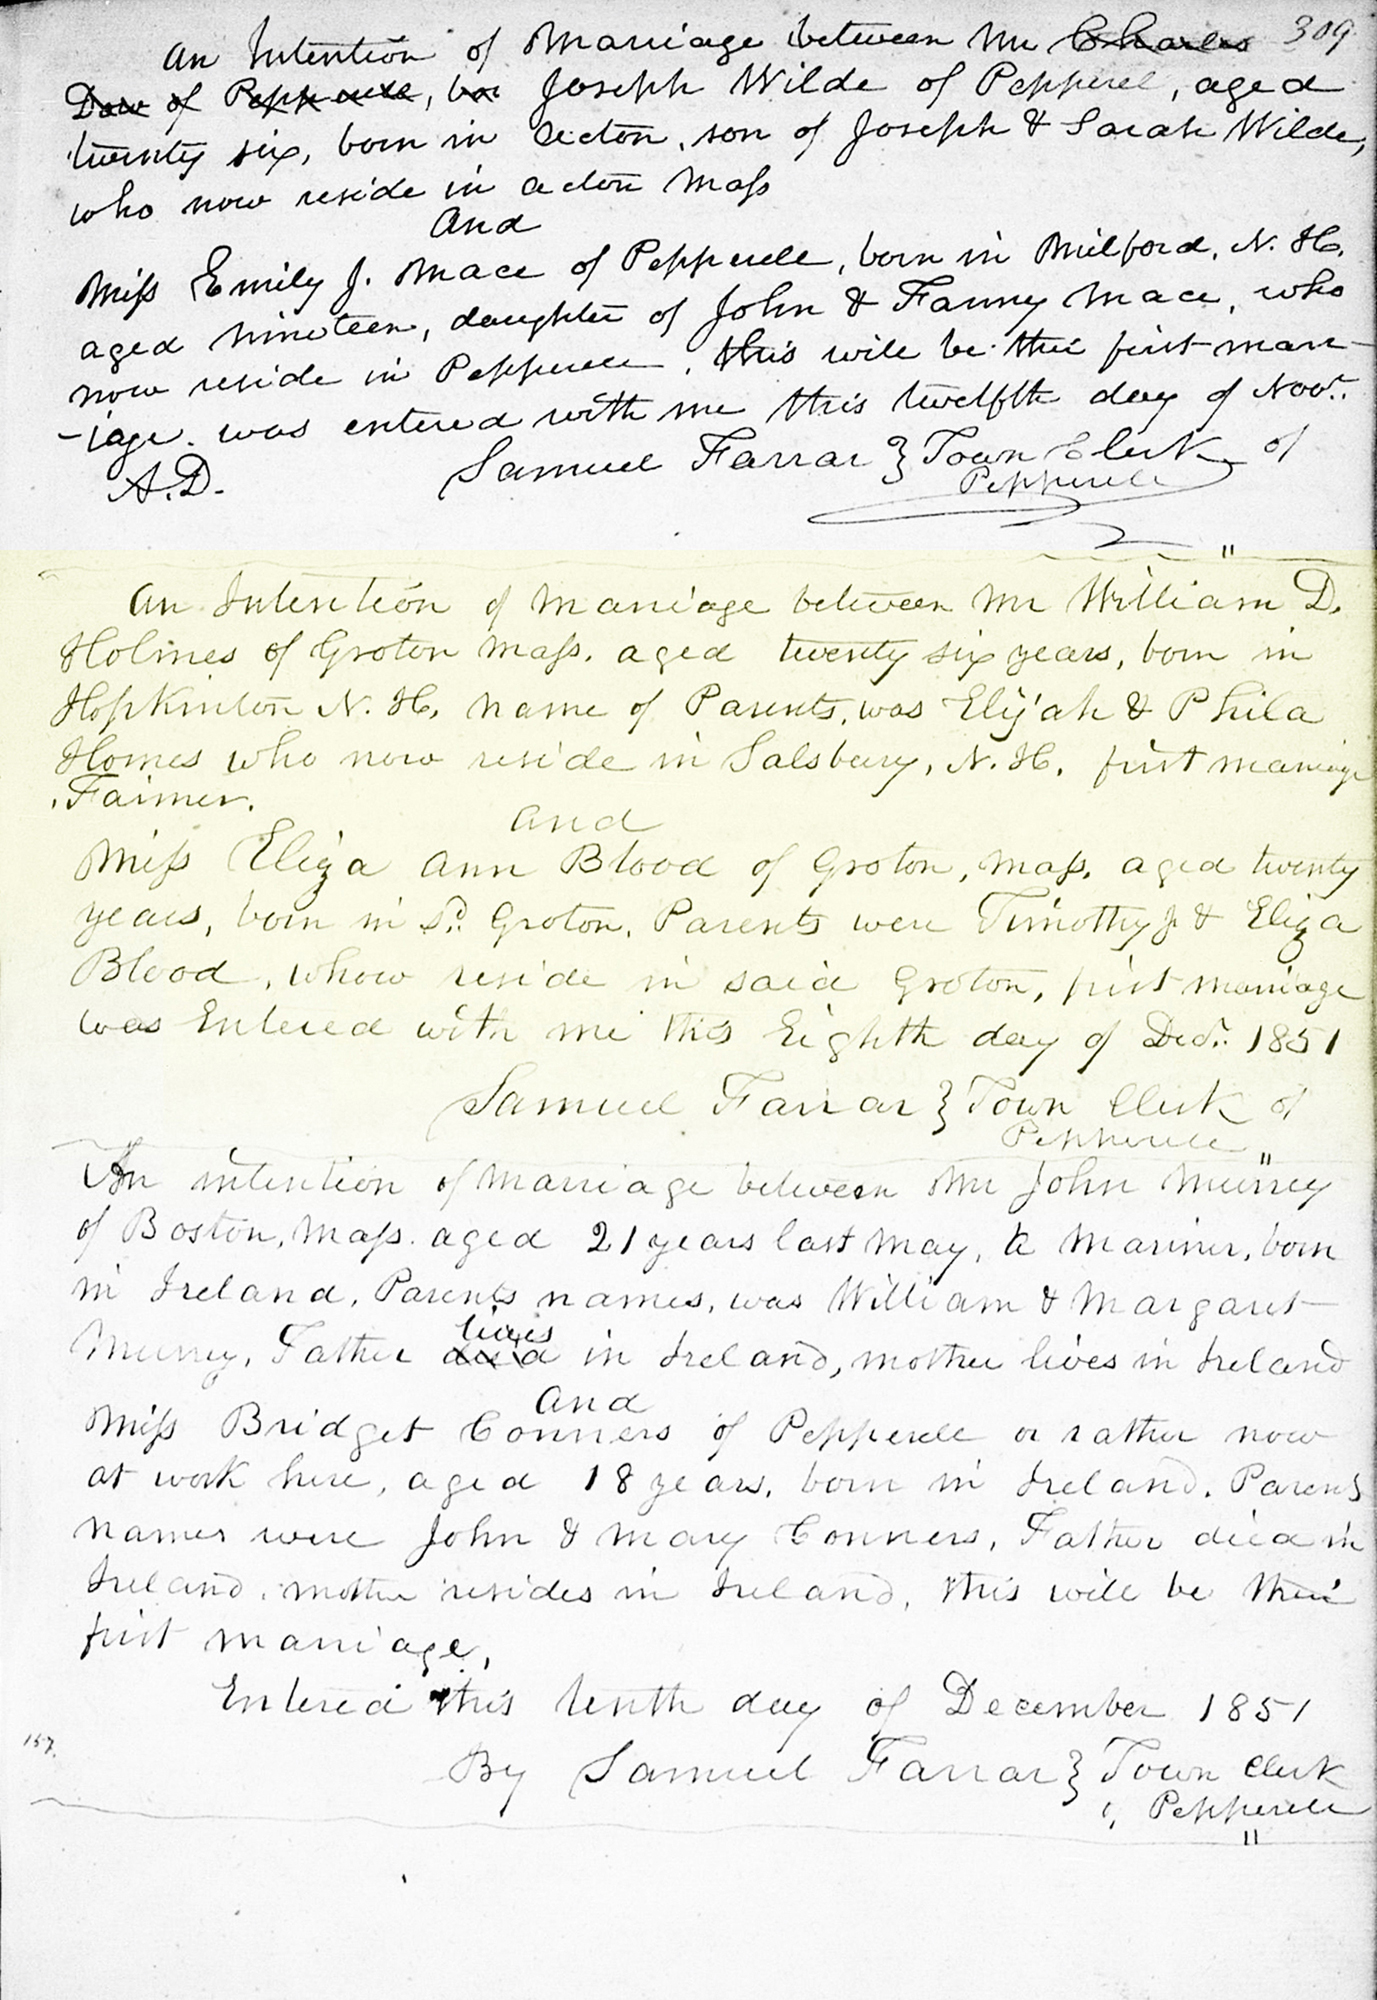 309
An Intention of Marriage between Mr Charles
Daw of Pepperell, bor Joseph Wilde of Pepperel, aged
twenty six, born in Acton, son of Joseph & Sarah Wilde,
who now reside in Acton Mass
And
Miss Emily J. Mace of Pepperell, born in Milford, N. H.
aged nineteen, daughter of John & Fanny Mace, who
now reside in Pepperell, this will be their first marr-
-iage. was entered with me this twelfth day of Novr.
A.D. Samuel Farrar } Town Clerk of
Pepperell
"
An Intention of Marriage between Mr William D.
Holmes of Groton Mass. aged twenty six years, born in
Hopkinton N. H. name of Parents, was Elijah & Phila
Homes who now reside in Salsbury, N. H. first marriage
Farmer.
And
Miss Eliza Ann Blood of Groton, Mass. aged twenty
years, born in Sd. Groton, Parents were Timothy Jr & Eliza
Blood, whow reside in said Groton, first marriage
was Entered with me this Eighth day of Decr. 1851
Samuel Farrar } Town Clerk of
Pepperell
"
An intention of Marriage between Mr John Murrey
of Boston, Mass. aged 21 years last May, a Mariner, born
in Ireland, Parents names, was William & Margaret
lives
Murrey, Father died in Ireland, mother lives in Ireland
And
Miss Bridget Conners of Pepperell or rather now
at work here, aged 18 years, born in Ireland. Parents
names were John & Mary Conners, Father died in
Ireland, mother resides in Ireland, this will be their
first marriage,
Entered this tenth day of December 1851
157.
By Samuel Farrar } Town Clerk
of Pepperell
"